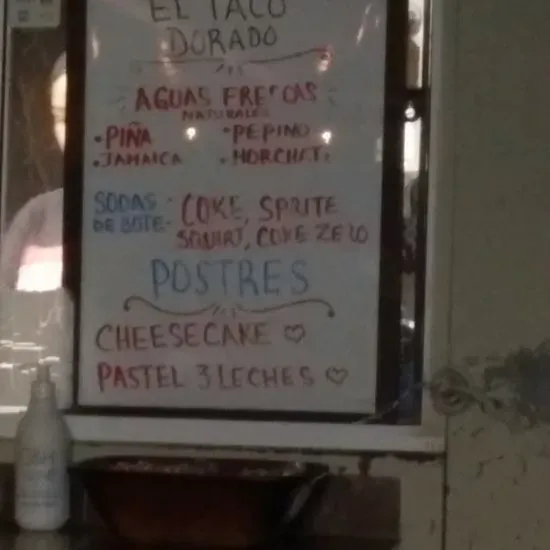 EL TACO
DORADO
AGUAS FRESCAS
NATURALES
• PIÑA • PEPINO
• JAMAICA • HORCHATA
SODAS • COKE, SPRITE
DE BOTE - SQUIRT, COKE ZERO
POSTRES
CHEESECAKE ♡
PASTEL 3 LECHES ♡